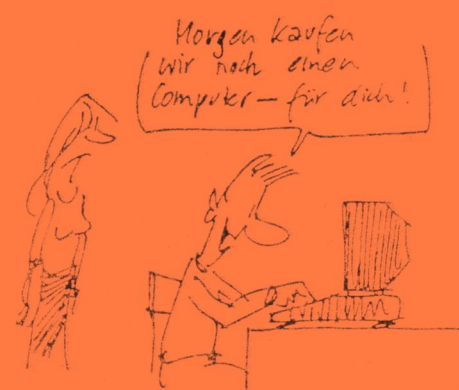 Morgen kaufen
wir noch einen
Computer — für dich!